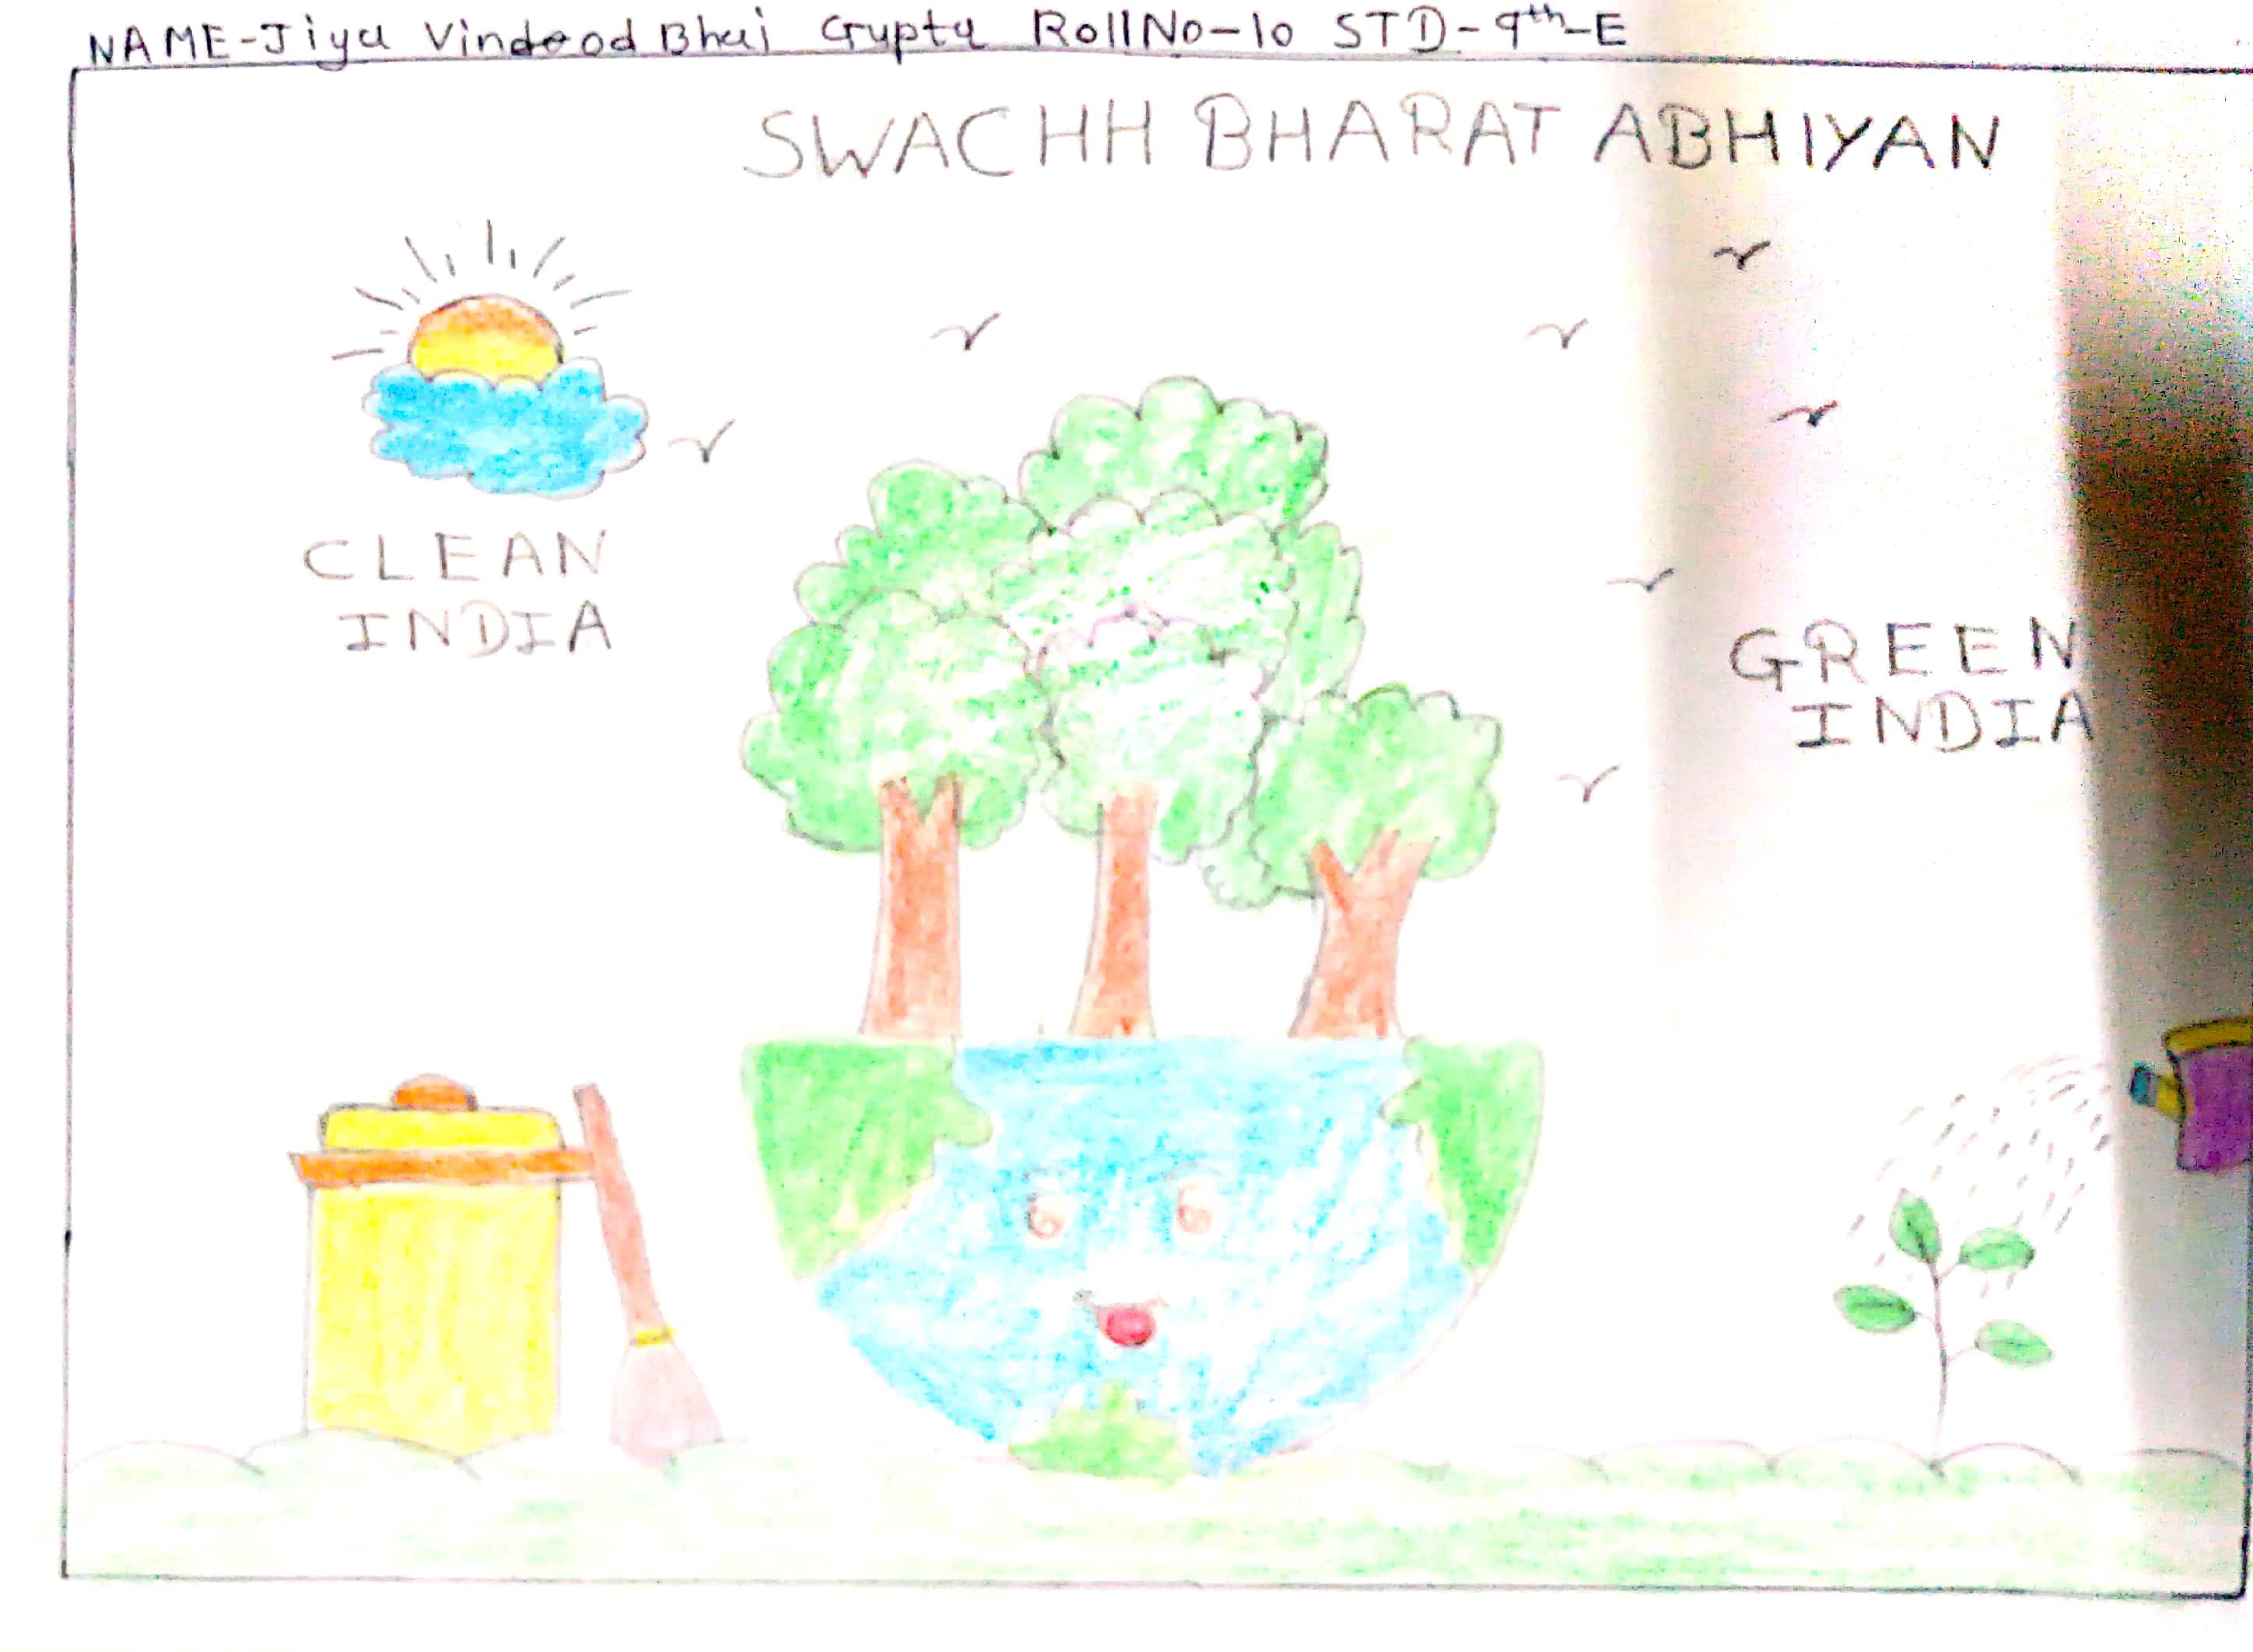 NAME-Jiya Vindood Bhai Gupta Roll No-10 STD-9th-E
SWACHH BHARAT ABHIYAN
CLEAN
INDIA
GREEN
INDIA